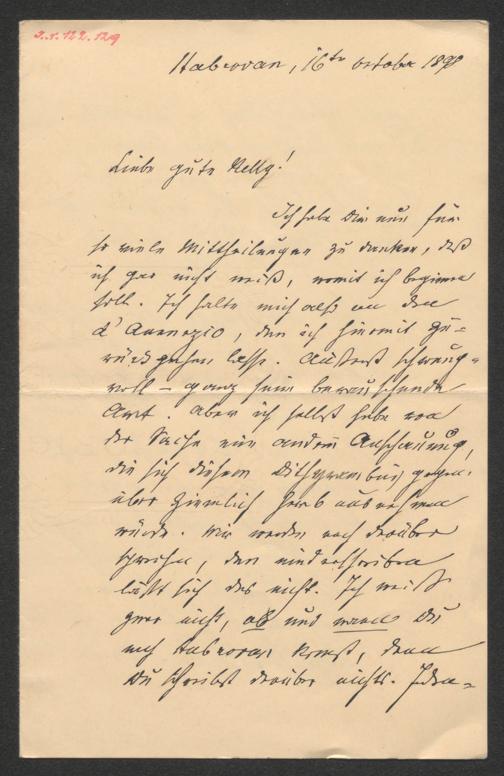 J.N. 122.129
Habrovan, 16te October 1898
Liebe gute Nelly!
Ich habe Dir nun für
so viele Mittheilungen zu danken, daß
ich gar nicht weiß, womit ich beginnen
soll. Ich halte mich also an den
d'Annunzio, den ich hiemit zu-
rückgehen lasse. Äußerst schwung-
voll – ganz seine berauschende
Art. Aber ich selbst habe von
der Sache eine andere Anschauung,
die sich diesem Dithyrambus gegen-
über ziemlich herb ausnehmen
würde. Wir werden noch darüber
sprechen, denn niederschreiben
läßt sich das nicht. Ich weiß
zwar nicht, ob und wann Du
nach Habrovan kommst, denn
Du schreibst darüber nichts.